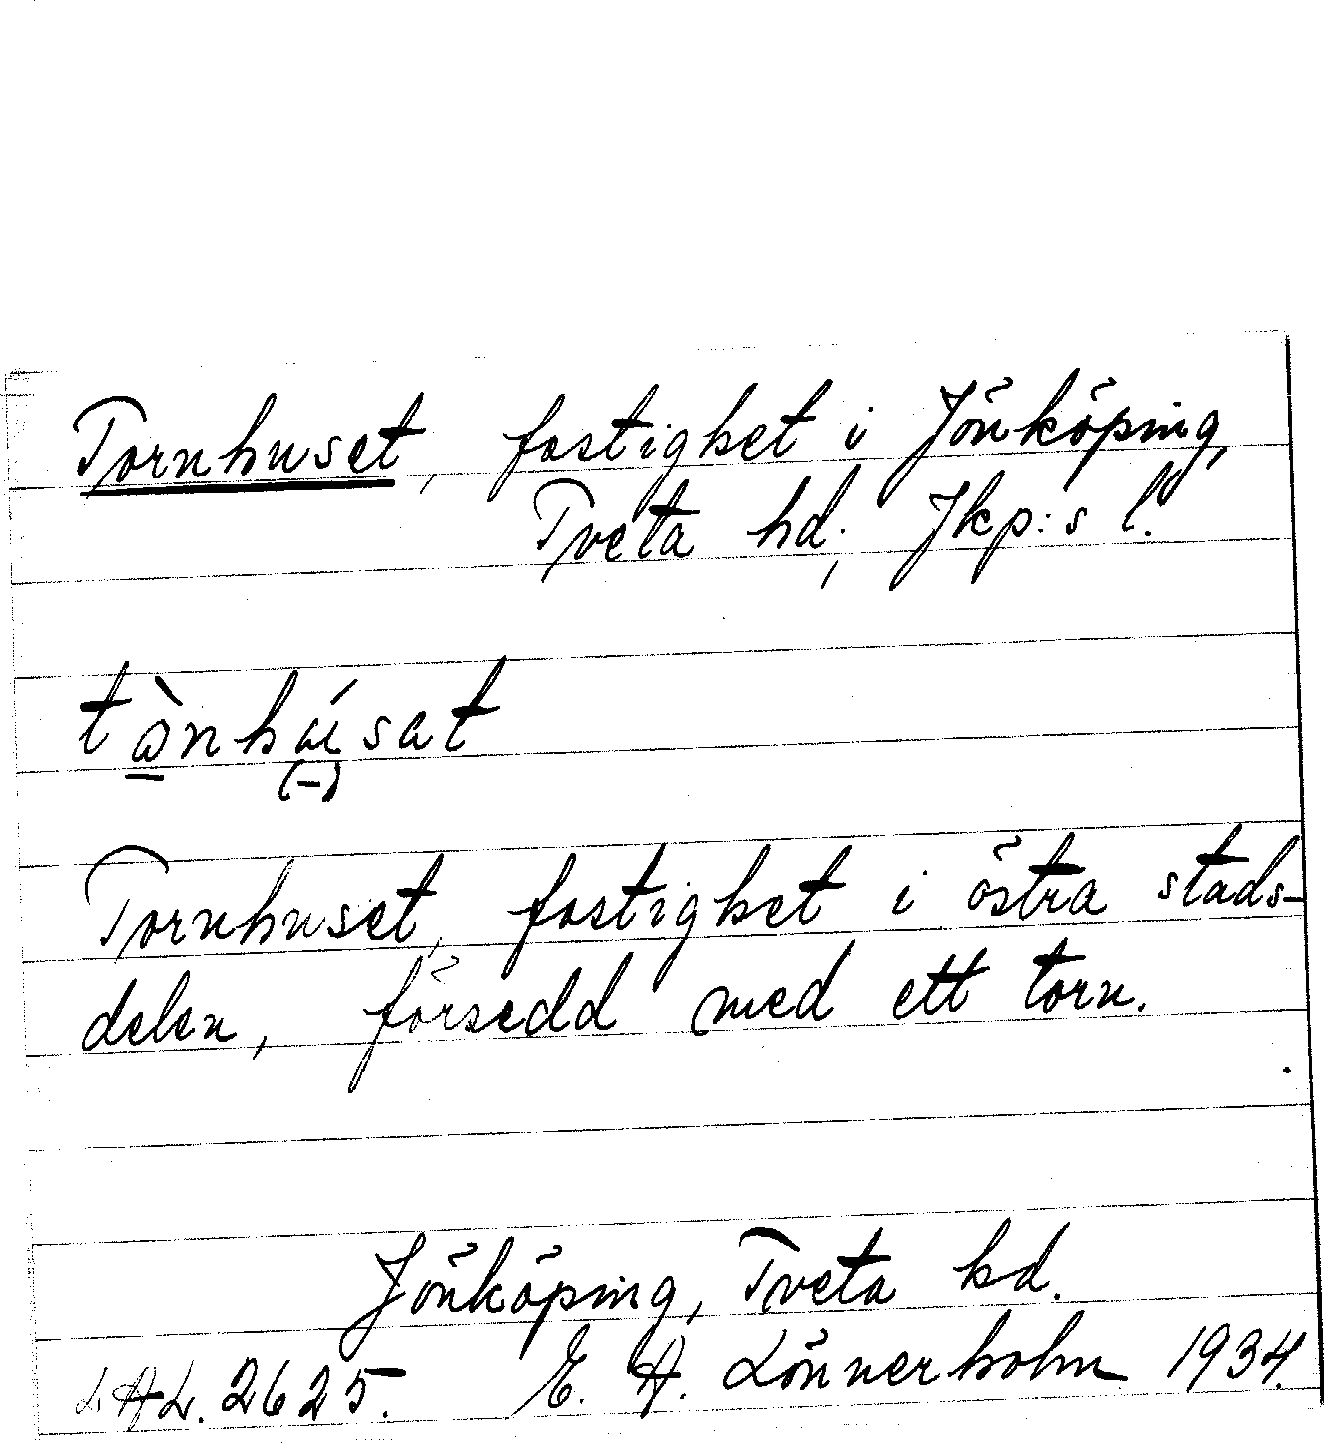 Tornhuset, fastighet i Jönköping,
Tveta hd, Jkp:s l.
tànhúsat
(-)
Tornhuset, fastighet i östra stads-
delen, försedd med ett torn.
Jönköping, Tveta hd.
LAL. 2625. E. A. Lönnerholm 1934.